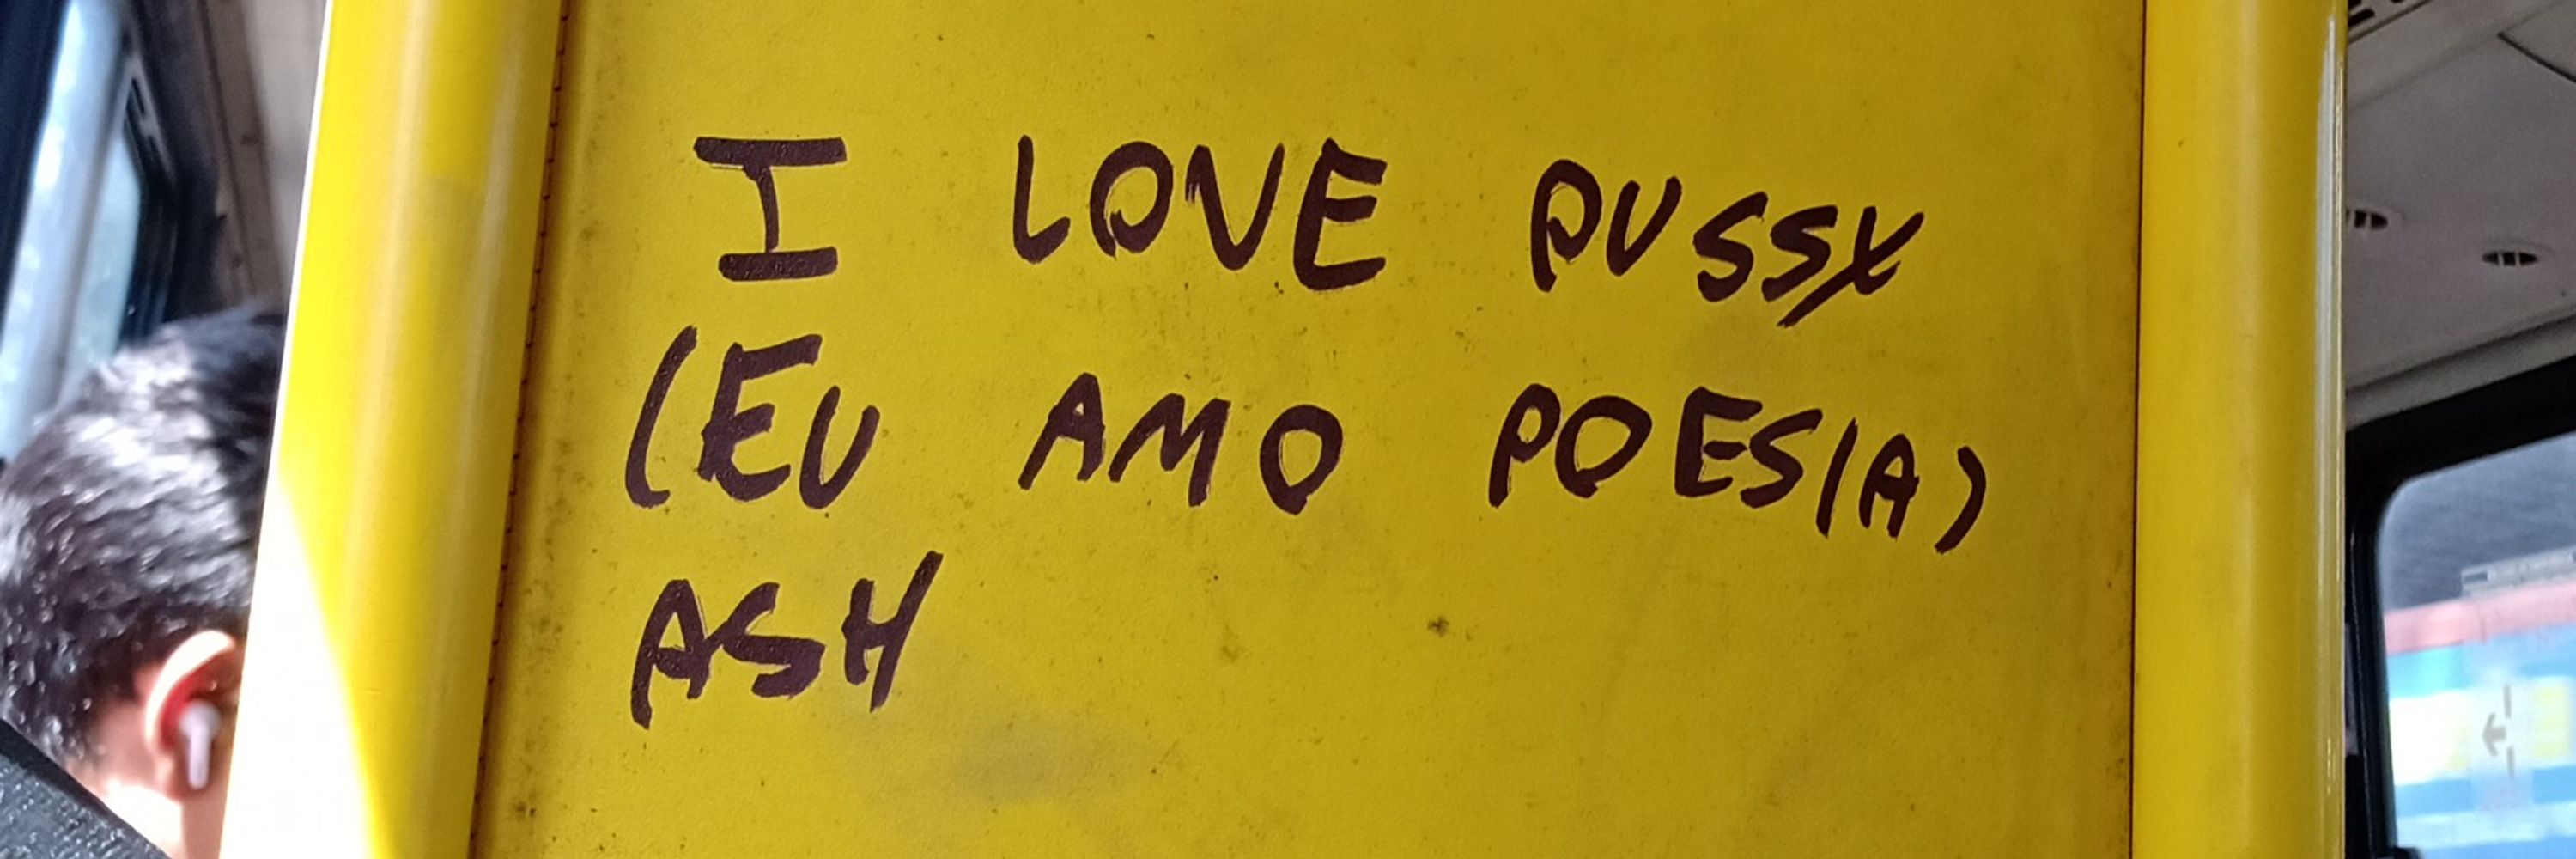 I LOVE PUSSY
(EU AMO POESIA)
ASH